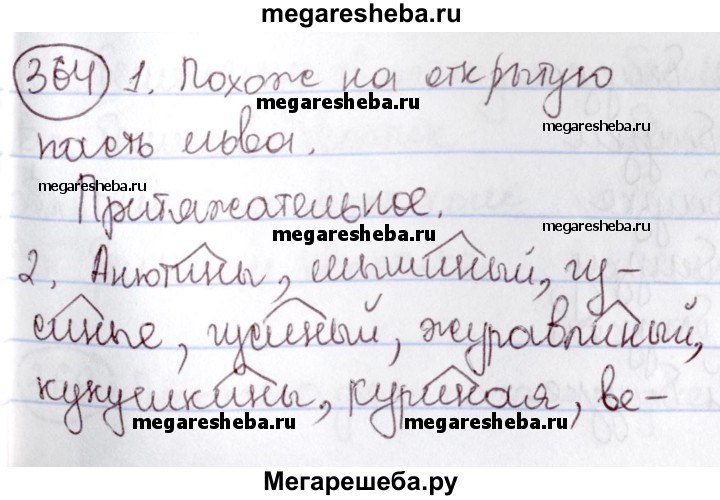 megaresheba.ru
364 1. Похоже на открытую
megaresheba.ru
megaresheba.ru
пасть льва.
megaresheba.ru
Притяжательное.
megaresheba.ru
megaresheba.ru
2. Анютины, мышиный, гу-
синые, гусиный, журавлиный,
megaresheba.ru
кукушкины, куриная, ве-
megaresheba.ru
megaresheba.ru
Мегарешеба.ру